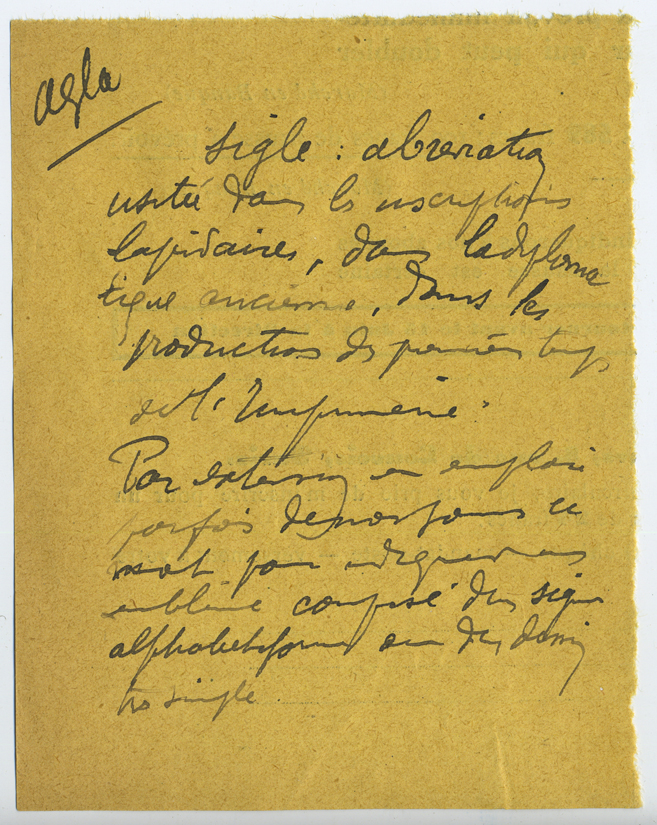 agla
sigle : abreviation
usitée dans les inscriptions
lapidaires, dans la diploma
tique ancienne, dans les
productions des premiers temps
de l'Imprimerie.
Par extension on emploie
parfois de nos jours ce
mot pour indiquer un
emblème composé d'un signe
alphabetiforme ou d'un dessin
très simple